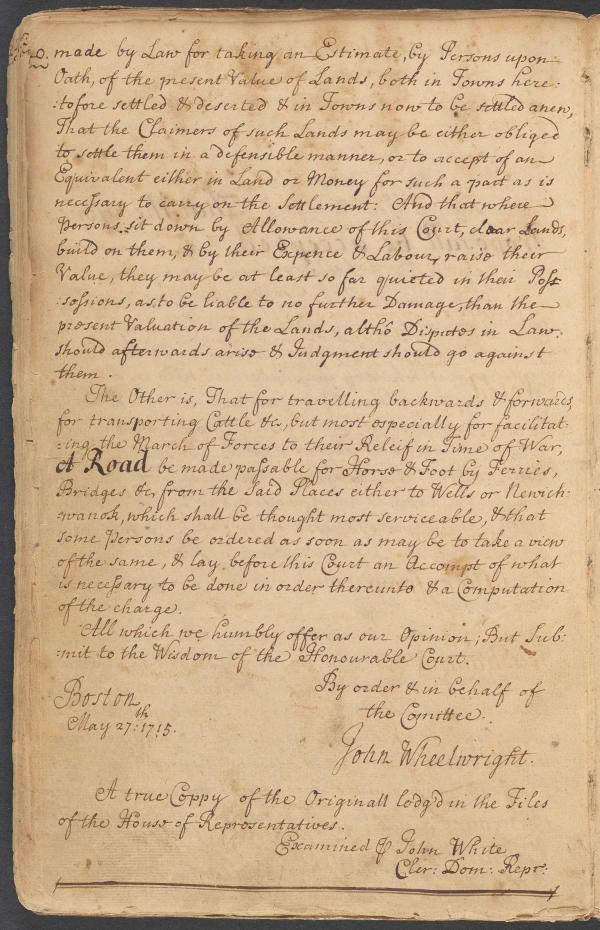 made by Law for taking an Estimate, by Persons upon
Oath, of the present Value of Lands, both in Towns here:
:tofore settled & deserted & in Towns now to be settled anew,
That the Claimers of such Lands may be either obliged
to settle them in a defensible manner, or to accept of an
Equivalent either in Land or Money for such a part as is
necessary to carry on the Settlement: And that where
Persons sit down by Allowance of this Court, clear Lands,
build on them, & by their Expence & Labour, raise their
Value, they may be at least so far quieted in their Poss
:sessions, as to be liable to no further Damage, than the
present Valuation of the Lands, altho Disputes in Law
should afterwards arise & Judgment should go against
them.
The Other is, That for travelling backwards & forwards,
for transporting Cattle &c, but most especially for facilitat:
:ing the March of Forces to their Releif in Time of War,
A Road be made passable for Horse & Foot by Ferries,
Bridges &c, from the said Places either to Wells or Newich:
:wanok, which shall be thought most serviceable, & that
some Persons be ordered as soon as may be to take a view
of the same, & lay before this Court an Accompt of what
is necessary to be done in order thereunto & a Computation
of the charge.
All which we humbly offer as our Opinion; But Sub:
:mit to the Wisdom of the Honourable Court.
By order & in behalf of
the Comittee.
Boston
May 27:th 1715.
John Wheelwright.
A true Coppy of the Originall lodg'd in the Files
of the House of Representatives.
Examined ⅌ John White
Cler: Dom: Repr: